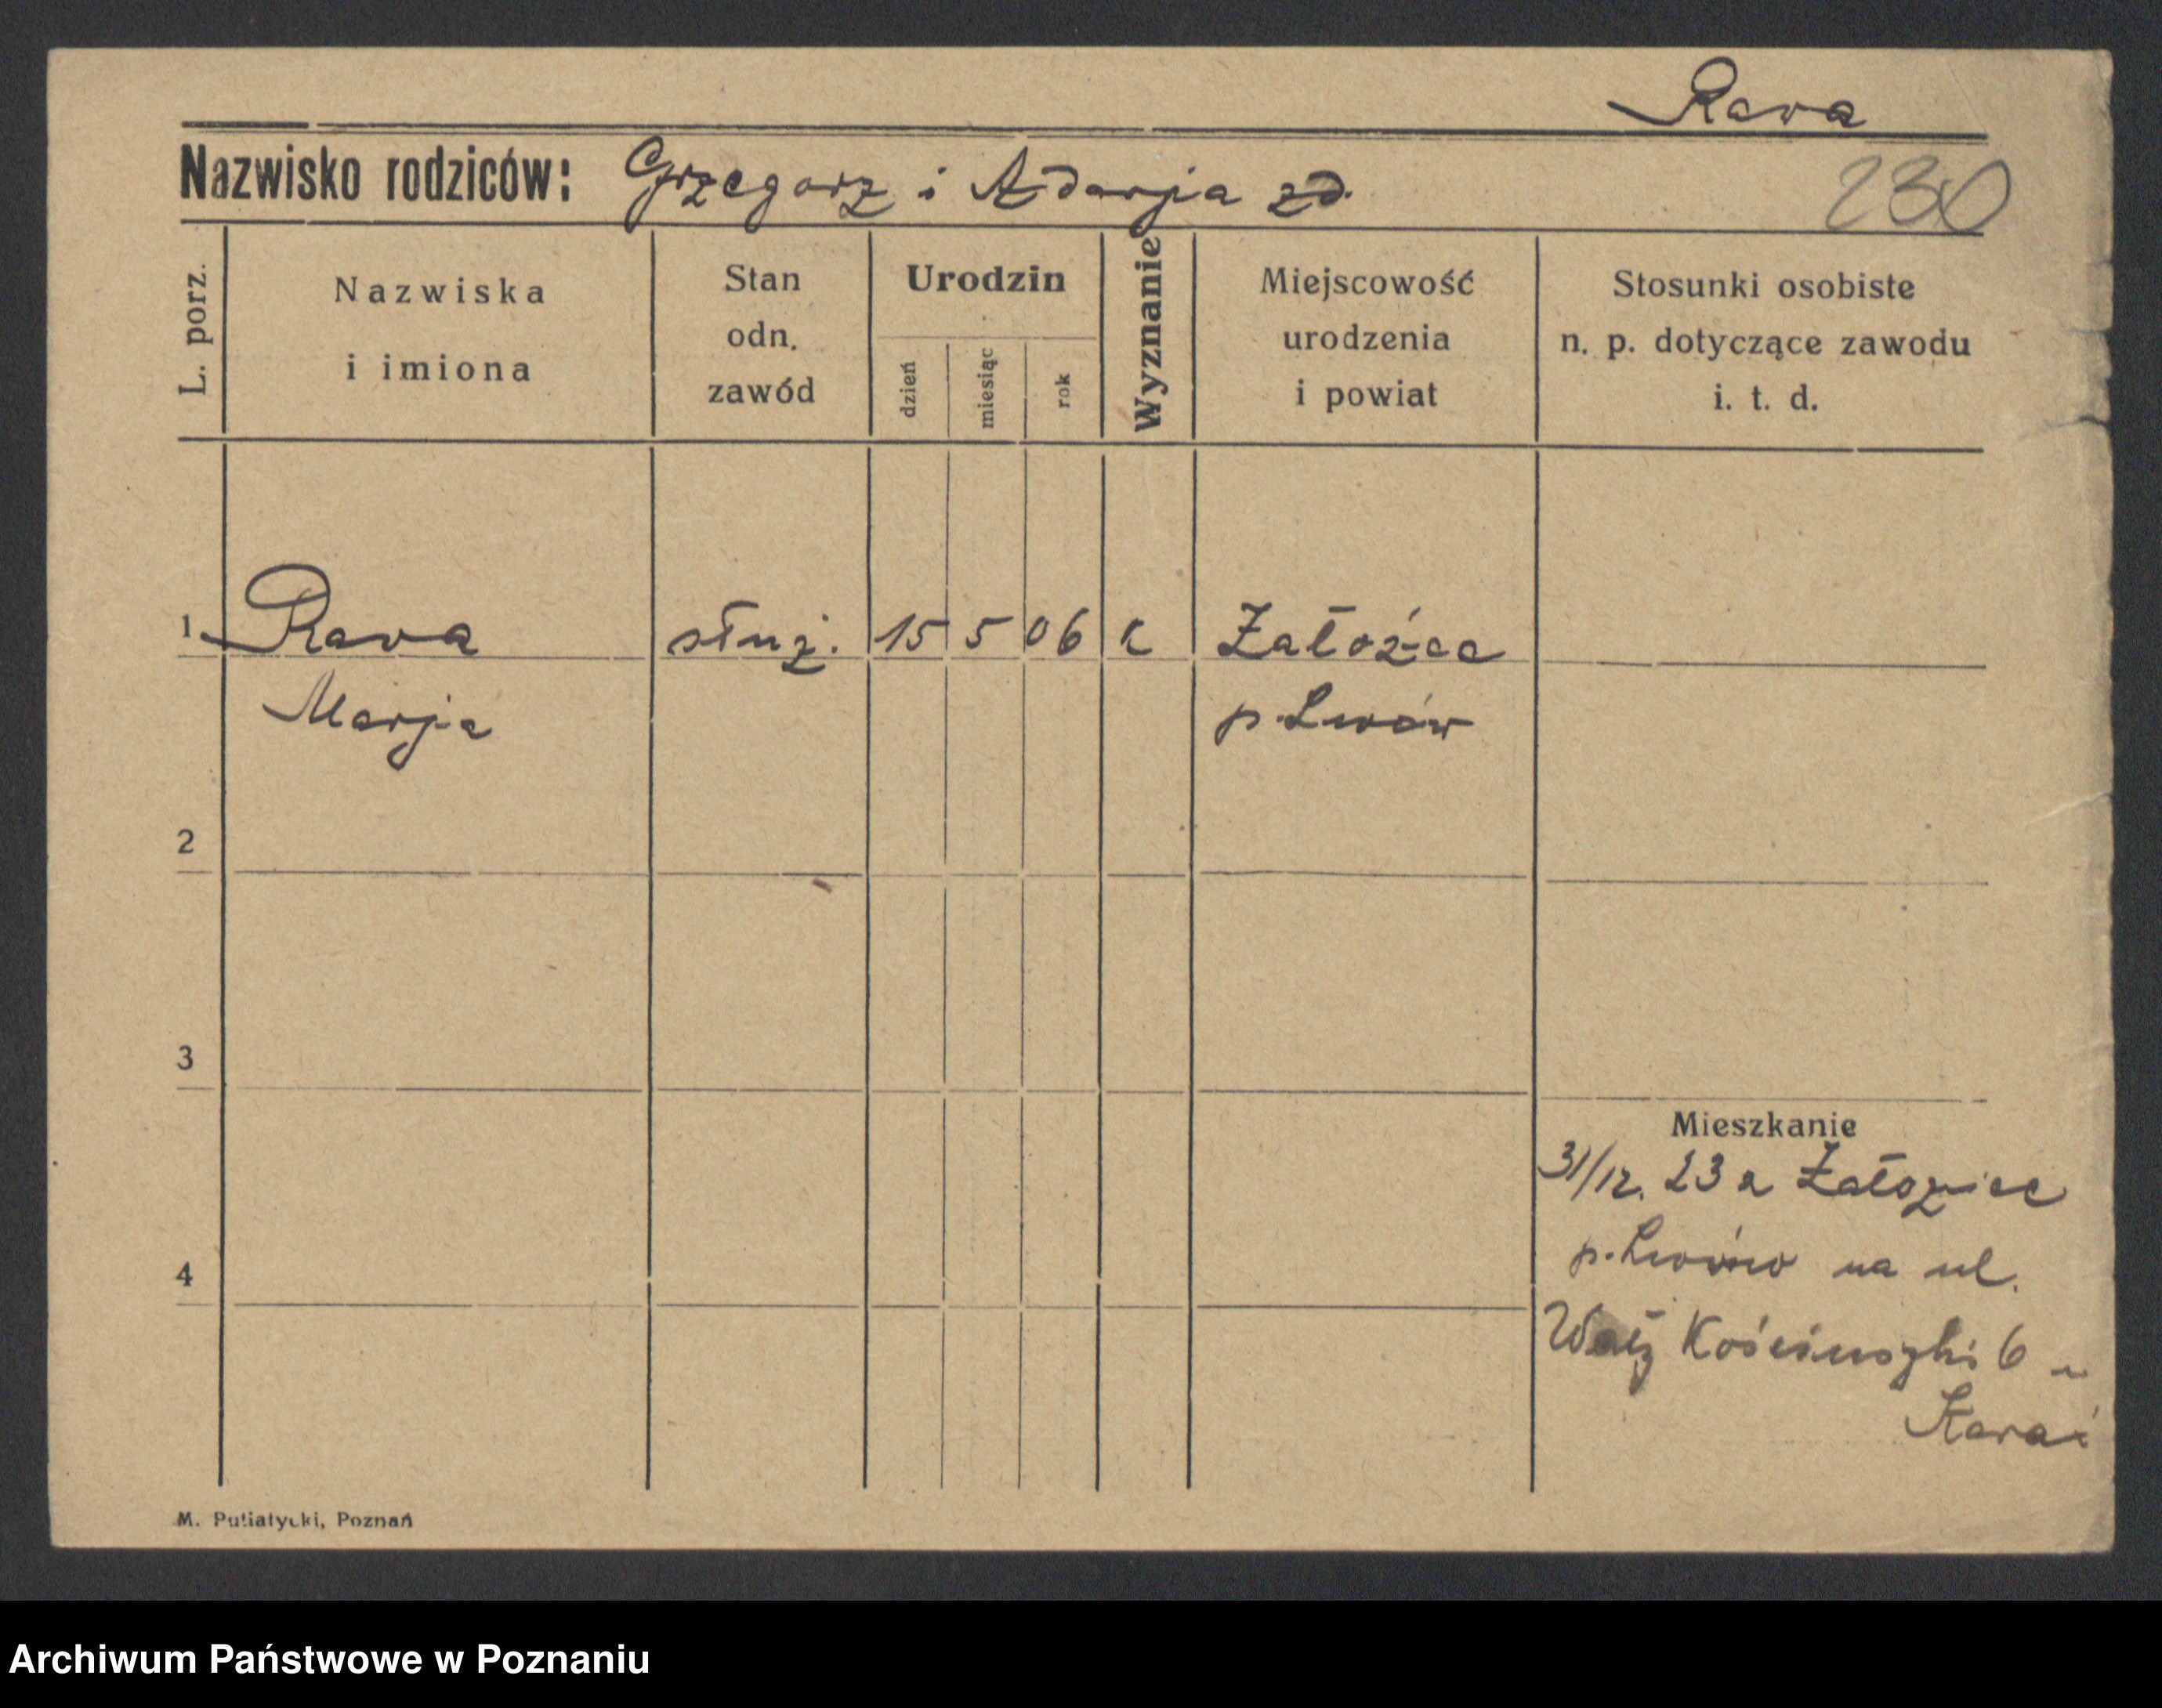 Rava
Nazwisko rodziców: Grzegorz i Adarja zd.
230
L. porz.
Nazwiska
i imiona
Stan
odn.
zawód
Urodzin
dzień
miesiąc
rok
Wyznanie
Miejscowość
urodzenia
i powiat
Stosunki osobiste
n. p. dotyczące zawodu
i. t. d.
1 Rava służ. 15 5 06 k Załoźce
Marja p. Lwów
2
3
Mieszkanie
31/12. 23 z Załoziec
p. Lwów na ul.
4
Wały Kościuszki 6 u
M. Putiatycki, Poznań
Archiwum Państwowe w Poznaniu